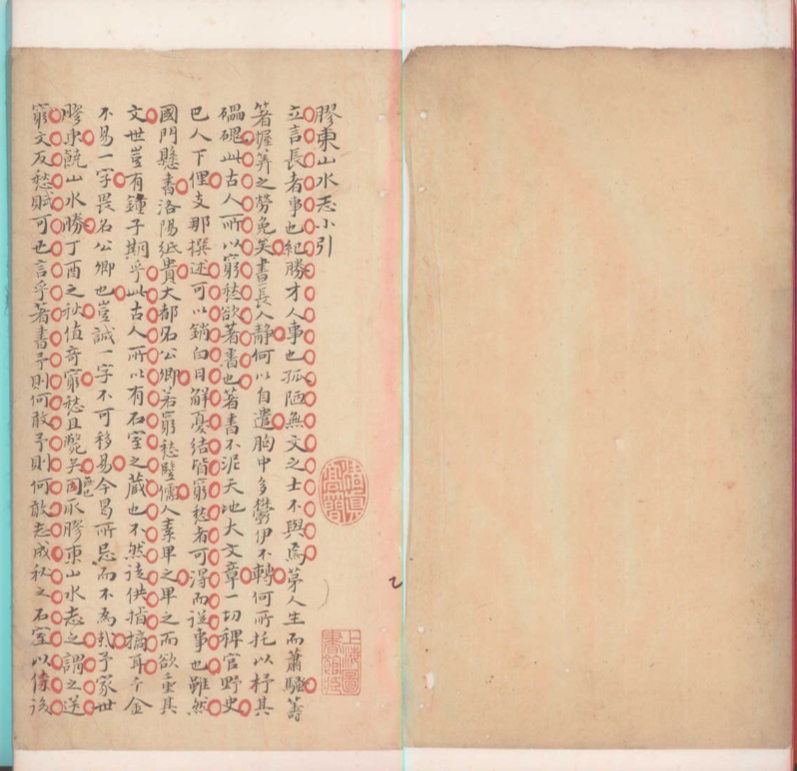 膠東山水志小引
立言長者事也紀勝才人事也孤陋無文之士不與焉第人生而蕭騷籌
箸握筭之勞免矣書長人靜何以自遣胸中多鬱伊不轉何所托以杼其
礧磈此古人所以窮愁欲著書也著書不泥天地大文章一切稗官野史
巴人下俚支那撰述可以銷白日解憂結皆窮愁者可得而從事也雖然
國門懸書洛陽紙貴大都名公卿若窮愁豎儒人素卑之卑之而欲重其
文世豈有鐘子期乎此古人所以有石室之藏也不然徒供指摘耳千金
不易一字畏名公卿也豈誠一字不可移易今曷所忌而不為哉予家世
膠東饒山水勝丁酉之秋值奇窮愁且斃矣因取膠東山水志之謂之送
窮文反愁賦可也言乎著書予則何敢予則何敢志成私之石室以俟後
清真高簡
上海圖書館藏